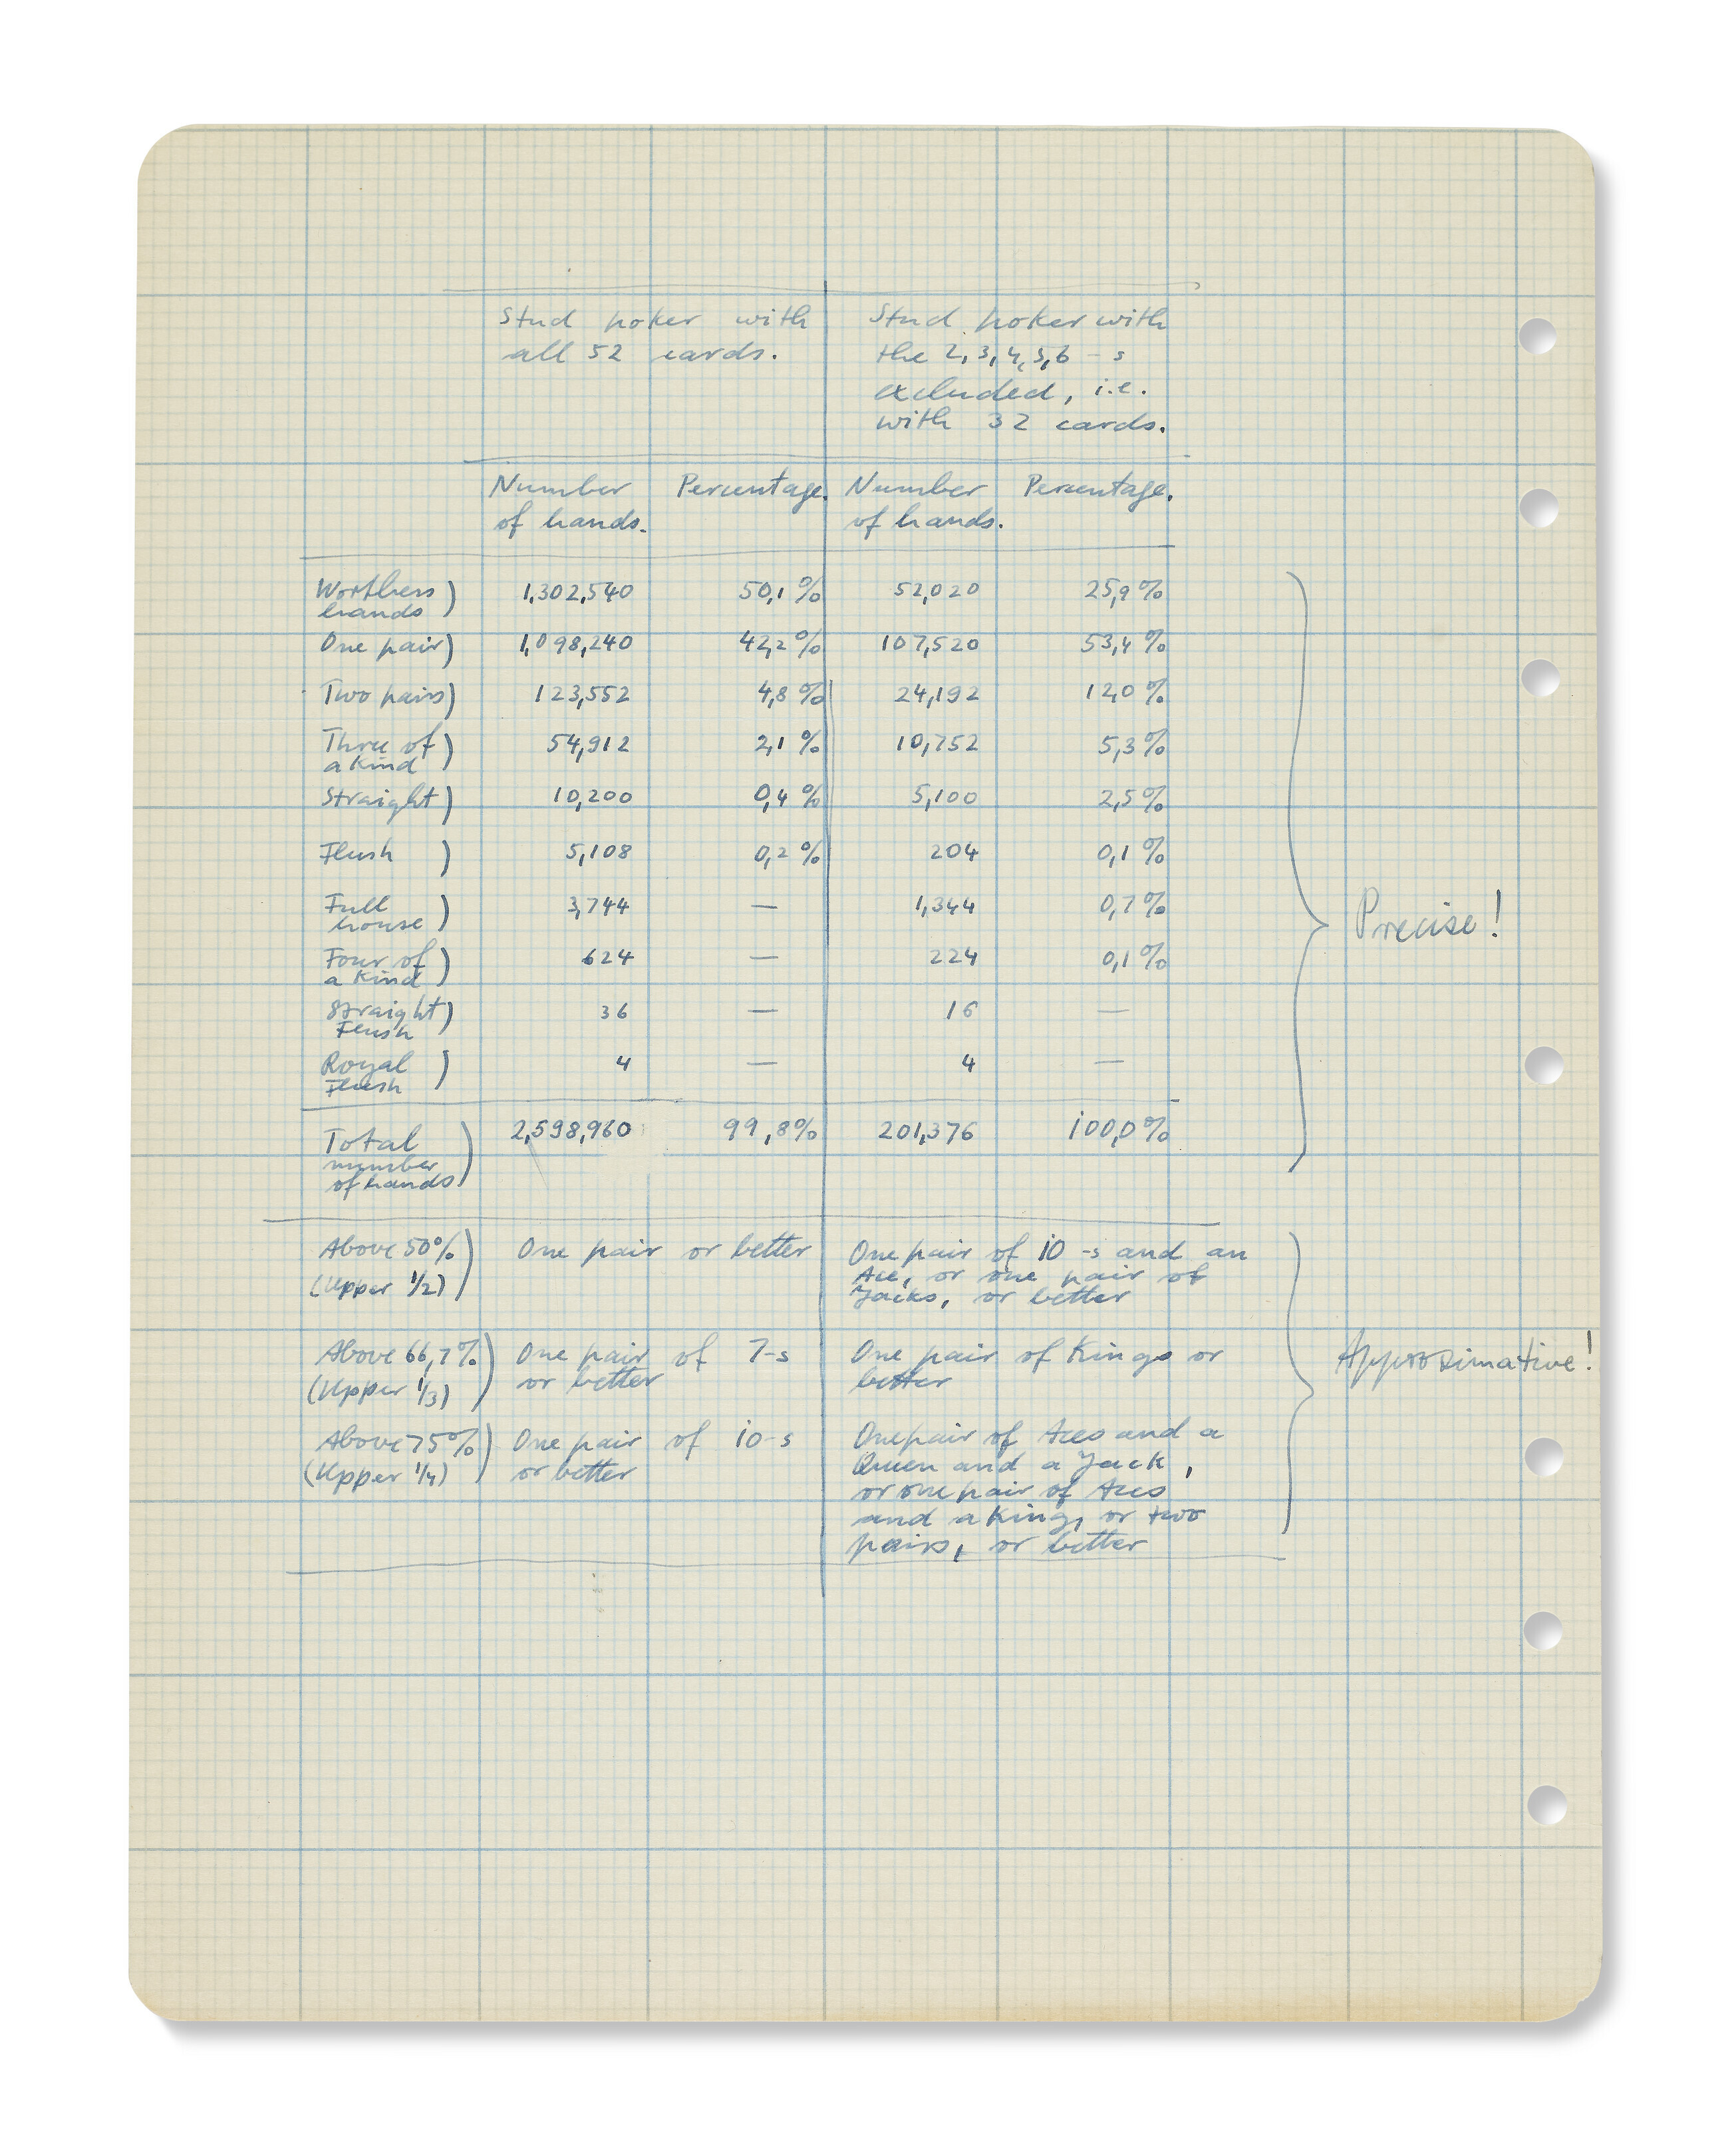 Stud poker with
all 52 cards.
Stud poker with
the 2,3,4,5,6-s
excluded, i.e.
with 32 cards.
Number
of hands.
Percentage.
Number
of hands.
Percentage.
Worthless
hands) 1,302,540 50,1% 52,020 25,9%
One pair) 1,098,240 42,2% 107,520 53,4%
Two pairs) 123,552 4,8% 24,192 12,0%
Three of
a kind) 54,912 2,1% 10,752 5,3%
Straight) 10,200 0,4% 5,100 2,5%
Flush) 5,108 0,2% 204 0,1%
Full
house) 3,744 — 1,344 0,7%
Four of
a kind) 624 — 224 0,1%
Straight
Flush) 36 — 16 —
Royal
Flush) 4 — 4 —
Precise!
Total
number
of hands) 2,598,960 99,8% 201,376 100,0%
Above 50%
(Upper 1/2))
One pair or better
One pair of 10-s and an
Ace, or one pair of
Jacks, or better
Above 66,7%
(Upper 1/3))
One pair of 7-s
or better
One pair of Kings or
better
Approximative!
Above 75%
(Upper 1/4))
One pair of 10-s
or better
One pair of Aces and a
Queen and a Jack,
or one pair of Aces
and a King, or two
pairs, or better